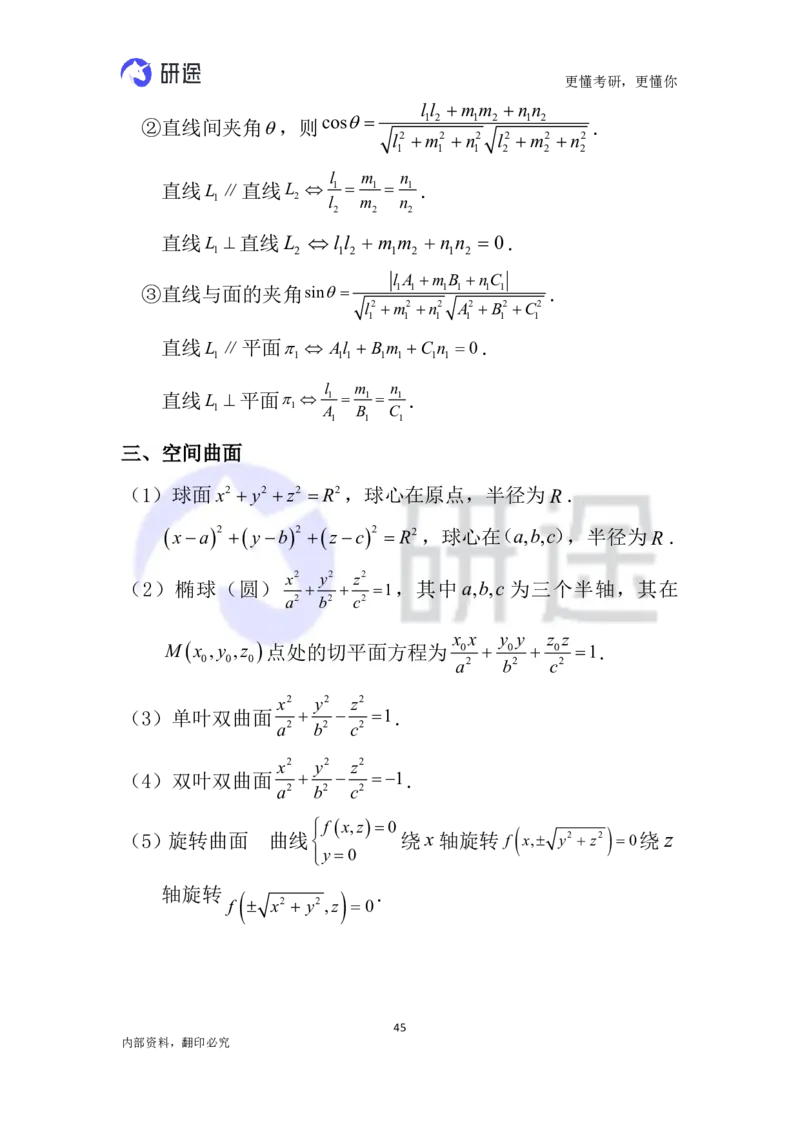 研途
更懂考研，更懂你
②直线间夹角θ，则cosθ = (l₁l₂ + m₁m₂ + n₁n₂) / (√(l₁² + m₁² + n₁²) √(l₂² + m₂² + n₂²)).
直线L₁ ∥ 直线L₂ ⇔ l₁/l₂ = m₁/m₂ = n₁/n₂.
直线L₁ ⊥ 直线L₂ ⇔ l₁l₂ + m₁m₂ + n₁n₂ = 0.
③直线与面的夹角sinθ = |l₁A₁ + m₁B₁ + n₁C₁| / (√(l₁² + m₁² + n₁²) √(A₁² + B₁² + C₁²)).
直线L₁ ∥ 平面π₁ ⇔ A₁l₁ + B₁m₁ + C₁n₁ = 0.
直线L₁ ⊥ 平面π₁ ⇔ l₁/A₁ = m₁/B₁ = n₁/C₁.
三、空间曲面
（1）球面x² + y² + z² = R²，球心在原点，半径为R.
(x − a)² + (y − b)² + (z − c)² = R²，球心在(a,b,c)，半径为R.
（2）椭球（圆） x²/a² + y²/b² + z²/c² = 1，其中a,b,c为三个半轴，其在
M(x₀,y₀,z₀)点处的切平面方程为 x₀x/a² + y₀y/b² + z₀z/c² = 1.
（3）单叶双曲面 x²/a² + y²/b² − z²/c² = 1.
（4）双叶双曲面 x²/a² + y²/b² − z²/c² = −1.
（5）旋转曲面 曲线{f(x,z) = 0, y = 0 绕x轴旋转 f(x,±√(y² + z²)) = 0绕z
轴旋转 f(±√(x² + y²),z) = 0.
研途
45
内部资料，翻印必究